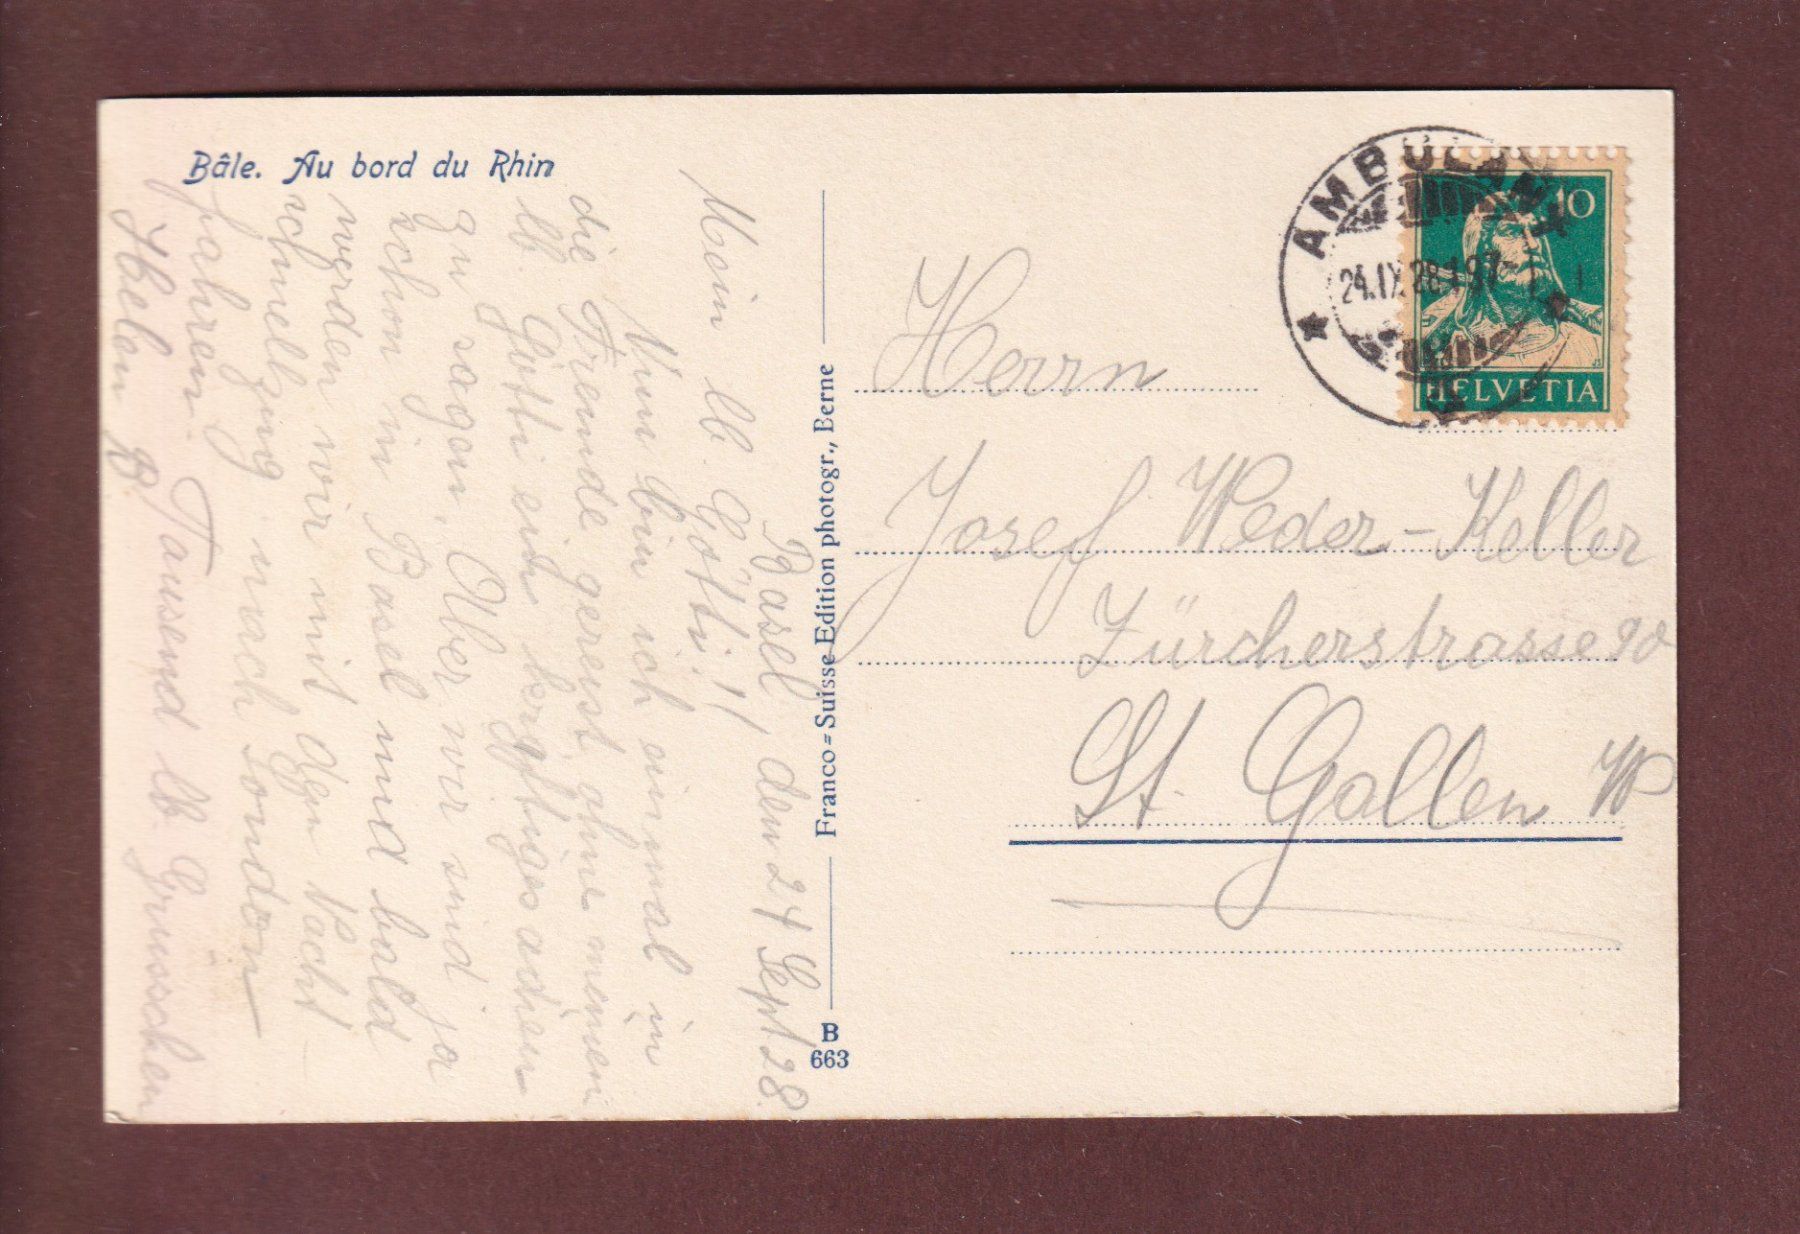 Bâle. Au bord du Rhin
Basel, den 24 Sept 28.
Mein lb. Götti!!
Nun bin ich einmal in
die Fremde gereist ohne meinen
lb. Götti ein kräftiges adieu
zu sagen. Aber wir sind ja
schon in Basel und bald
werden wir mit dem Nacht
schnellzug nach London
fahren. Tausend lb Grüsschen
Helen
Franco=Suisse Edition photogr., Berne
B
663
AMBULANT
24.IX.28
10
HELVETIA
Herrn
Josef Weder-Keller
Zürcherstrasse 90
St. Gallen W